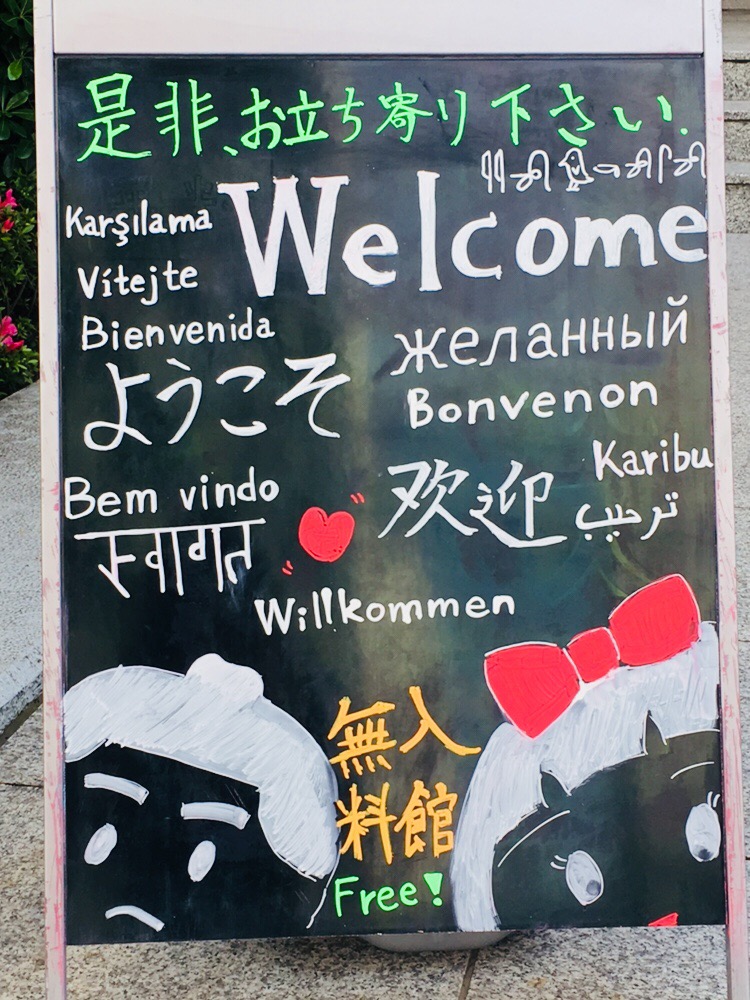 是非、お立ち寄り下さい.
Welcome
Karşılama
Vítejte
Bienvenida
желанный
ようこそ
Bonvenon
Karibu
Bem vindo
欢迎
ترحيب
स्वागत
Willkommen
入館
無料
Free!